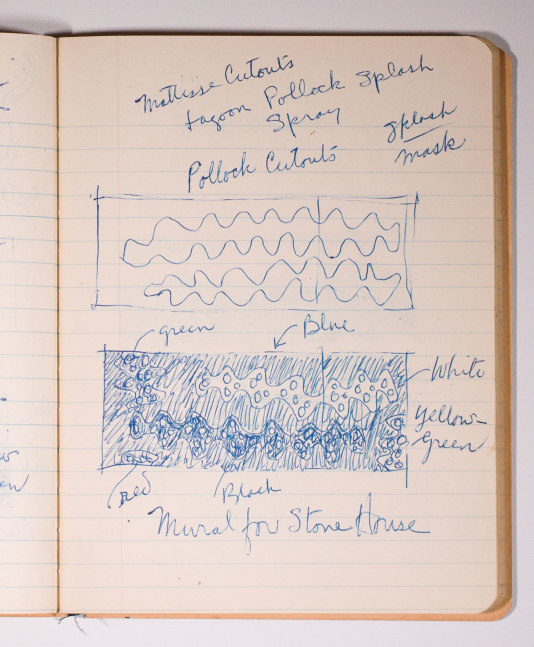 Matisse Cutouts
Lagoon Pollock Splash
Spray
Splash
Mask
Pollock Cutouts
green
Blue
White
Yellow-
Green
Red
Black
Mural for Stone House